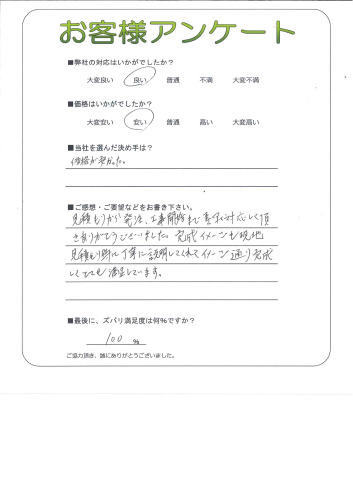 お客様アンケート
■弊社の対応はいかがでしたか?
大変良い 良い 普通 不満 大変不満
■価格はいかがでしたか?
大変安い 安い 普通 高い 大変高い
■当社を選んだ決め手は?
価格が安かった。
■ご感想・ご要望などをお書き下さい。
見積もりから発注、工事開始まで 対応して頂
きありがとうございました。完成イメージも現地
見積もり時に丁寧に説明してくれてイメージ通り完成
しとても満足しています。
■最後に、ズバリ満足度は何%ですか?
100 %
ご協力頂き、誠にありがとうございました。